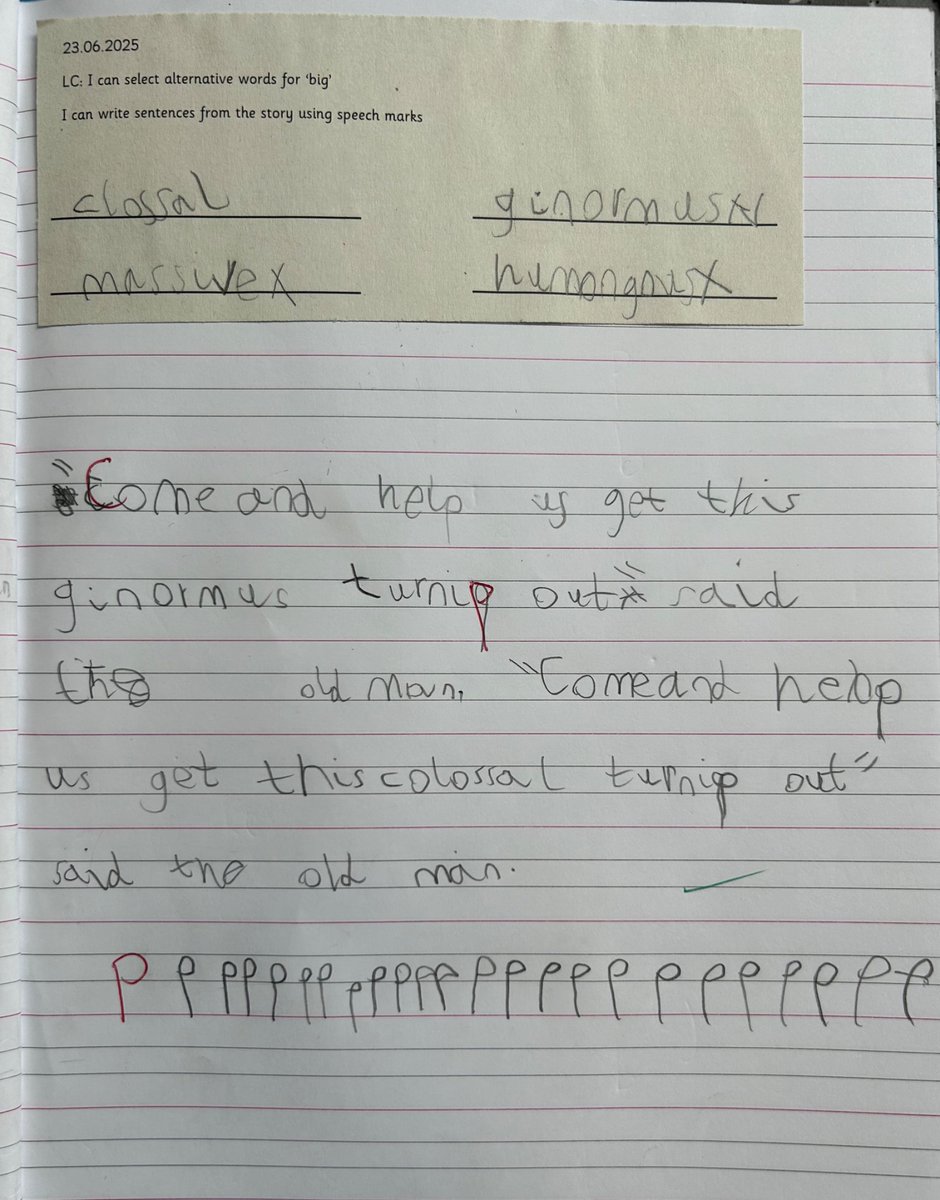 23.06.2025
LC: I can select alternative words for ‘big’
I can write sentences from the story using speech marks
clossal ginormus
massive humongous
"Come and help us get this
ginormus turnip out" said
the old man, "Come and help
us get this colossal turnip out"
said the old man.
p p p p p p p p p p p p p p p p p p p p p p p p